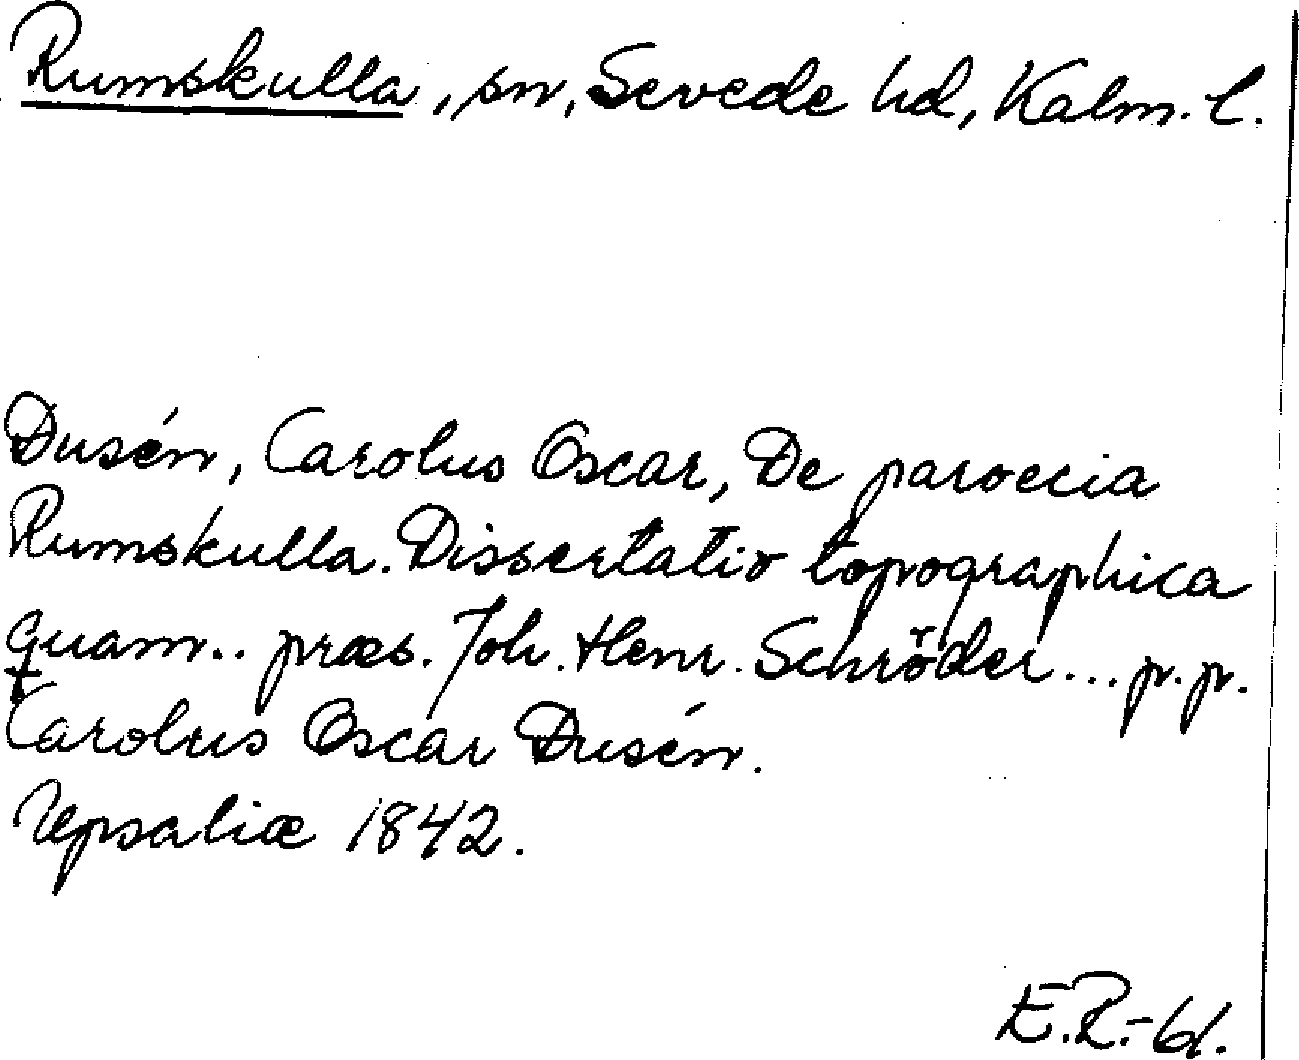 Rumskulla, sn, Sevede hd, Kalm. l.
Dusén, Carolus Oscar, De paroecia
Rumskulla. Dissertatio topographica
quam.. præs. Joh. Henr. Schröder... p. p.
Carolus Oscar Dusén.
Upsaliæ 1842.
E.R.-61.